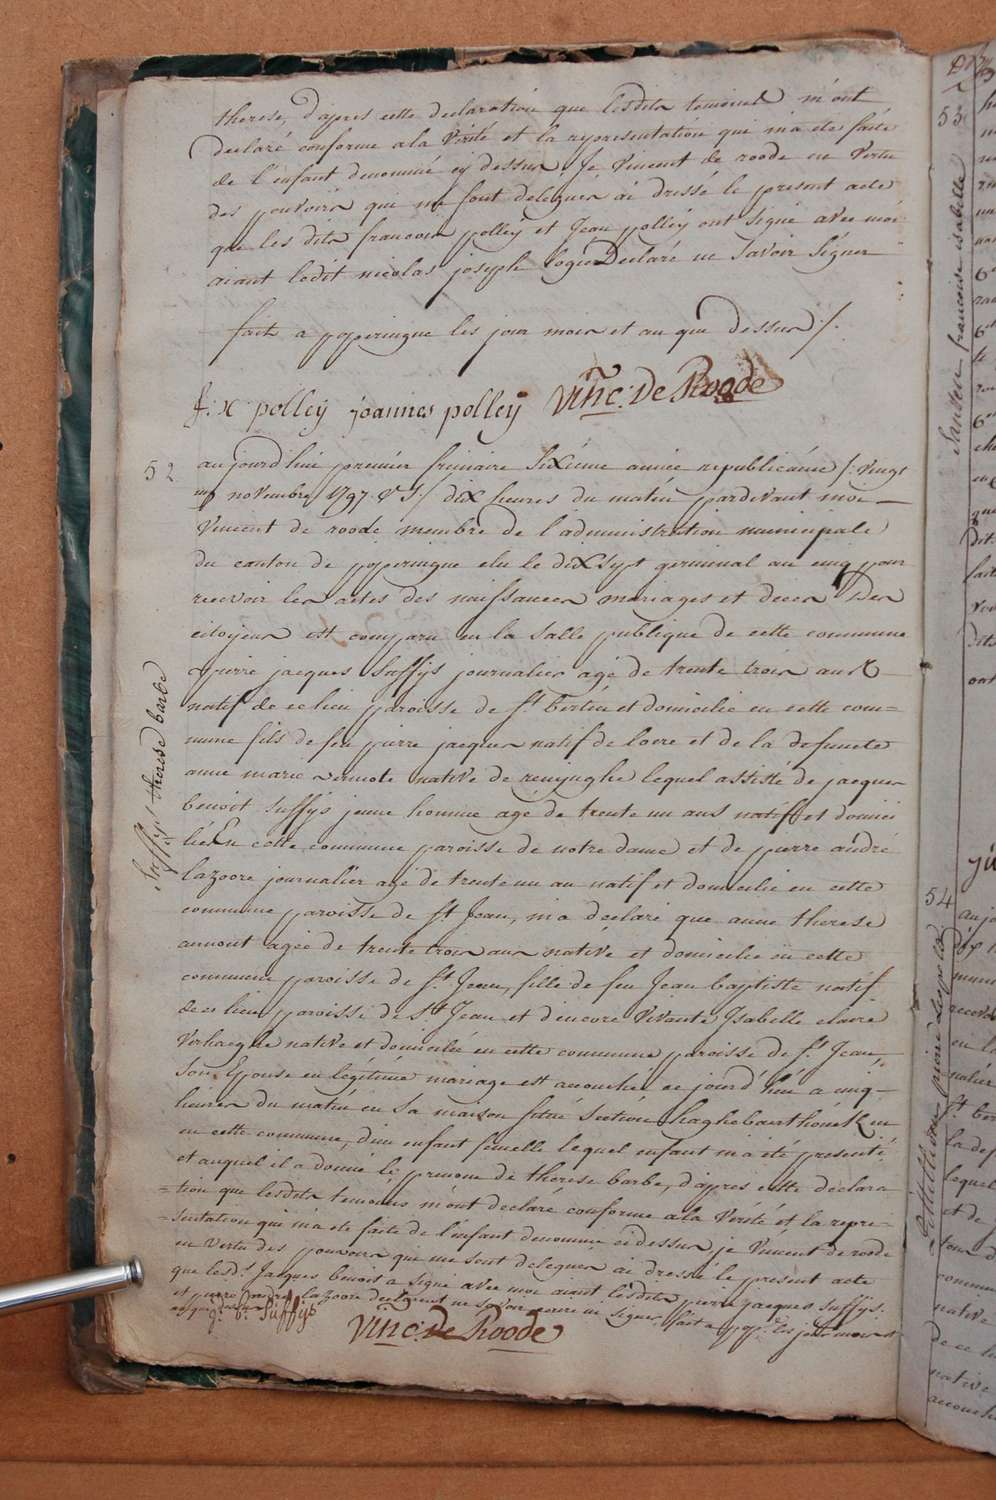 therese, d'apres cette declaration que lesdits temoins m'ont
declaré conforme a la Verité et la representation qui m'a ete faite
de l'enfant denommé cy dessus Je Vincent de roode en Vertu
des pouvoirs qui me sont deleguér ai dressé le present acte
que les dits francois polley et Jean polley ont signé avec moi
aiant ledit nicolas joseph Declaré ne Savoir Signer
fait a poperingue les jour mois et an que dessus /.
f: x: polleÿ joannes polleÿ Vinc: De Roode
52
aujourd'hui premier frimaire Sixieme année republicaine /: Vingt
un novembre 1797 V S:/ dix heures du matin pardevant moi
Vincent de roode membre de l'administration municipale
du canton de poperingue elu le dix Sept germinal an cinq pour
recevoir les actes des naissances mariages et deces Des
citoyens est comparu en la Salle publique de cette commune
pierre jacques Suffys journalier agé de trente trois ans
natif de ce lieu paroisse de St bertin et domicilié en cette com=
mune fils de feu pierre jacques natif de locre et de la defuncte
anne marie vermote native de reninghe lequel assisté de jacques
benoit Suffys jeune homme agé de trente un ans natif et domici
lié En cette commune paroisse de notre dame et de pierre andré
lazoore journalier agé de trente un an natif et domicilié en cette
commune paroisse de St Jean, m'a declaré que anne therese
amout agée de trente trois ans native et domicilie en cette
commune paroisse de St Jean, fille de feu Jean baptiste natif
de ce lieu paroisse de St Jean et d'encore Vivante Isabelle claire
Verhaeghe native et domicilié en cette commune paroisse de St Jean,
Son Epouse en légitime mariage est accouchée ce jourd'hui a cinq
heures du matin en Sa maison Section haghebaerthouck
en cette commune, d'un enfant femelle lequel enfant m'a été presenté
et auquel il a donné le prenom de therese barbe, d'apres cette déclara
=tion que lesdits temoins m'ont declaré conforme a la Verité et la repre=
=sentation qui m'a eté faite de l'enfant denommé ci dessus, je Vincent de roode
en vertu des pouvoirs que me sont deleguér ai dressé le present acte
que led.t Jacques benoit a signé avec moi aiant lesdits pierre jacques Suffys
et pierre andré lazoore declarent ne savoir ecrire ne signer, fait a pop. les jour mois et
an que dessus
j: b: Suffys Vinc: De Roode
Suffys therese barbe
53
Francoise isabelle
54